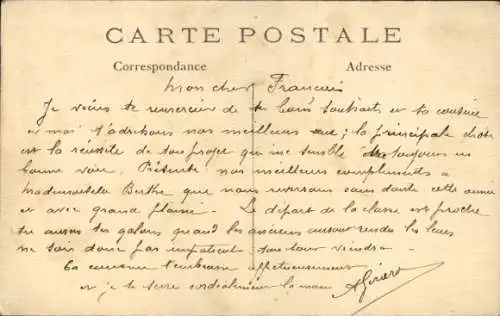 CARTE POSTALE
Correspondance Adresse
Mon cher Francois
Je viens te remercier de tes bons souhaits et ta cousine
et moi t'adressons nos meilleurs ; la principale chose
est la réussite de ton projet qui me semble être toujours en
bonne voie. Présente nos meilleurs compliments à
Mademoiselle Berthe que nous reverrons sans doute cette année
et avec grand plaisir. Le départ de la classe est proche
tu auras tes galons quand les anciens auront rendu les leurs
ne sois donc pas impatient ton tour viendra.
Ta cousine t'embrasse affectueusement
et je te serre cordialement la main AGirard